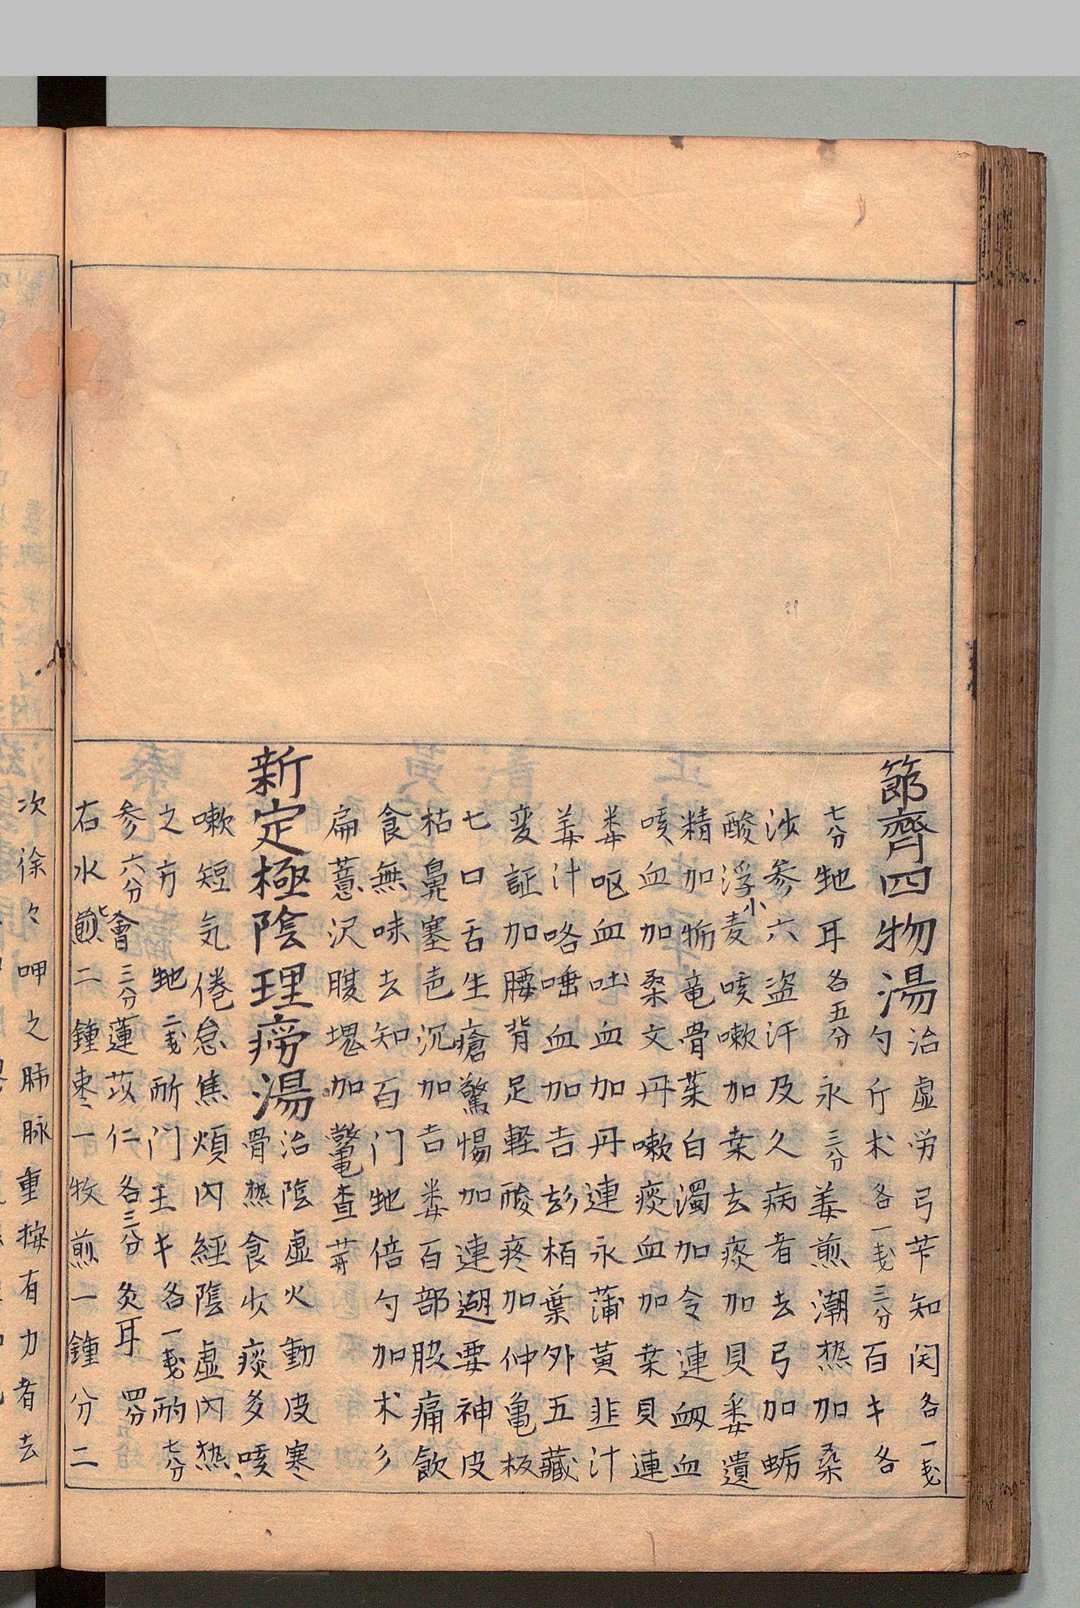 節齊四物湯 治虛労弓芐知䦕各一戔
三分百キ各
勺斤朮各一戔
七分虵耳各五分永三分姜煎潮热加桑
沙参六盗汗及久病者去弓加蛎
酸浮小麦咳嗽加桒去痰加貝娄遺
精加蛎竜骨葉白濁加令連衂血
咳血加桑文丹嗽痰血加桒貝連
娄呕血吐血加丹連永蒲黄韭汁
姜汁咯唾血加吉彭栢葉外五藏
変証加腰背足軽酸疼加仲亀板
七口舌生瘡驚惕加連遡要神皮
枯鼻塞邑沉加吉娄百部股痛飲
食無味去知百门虵倍勺加朮彡
扁薏沢腹塊加鼈查莪
新定極陰理痨湯 治陰虛火動皮寒
骨热食少痰多咳
嗽短気倦怠焦煩内経陰虛内热
之方虵二戔所门王キ各一戔耐七分
参六分會三分蓮苡仁各三分灸耳四分
右水煎七二鍾枣一牧煎一鍾分二
次徐々呷之肺脉重按有力者去